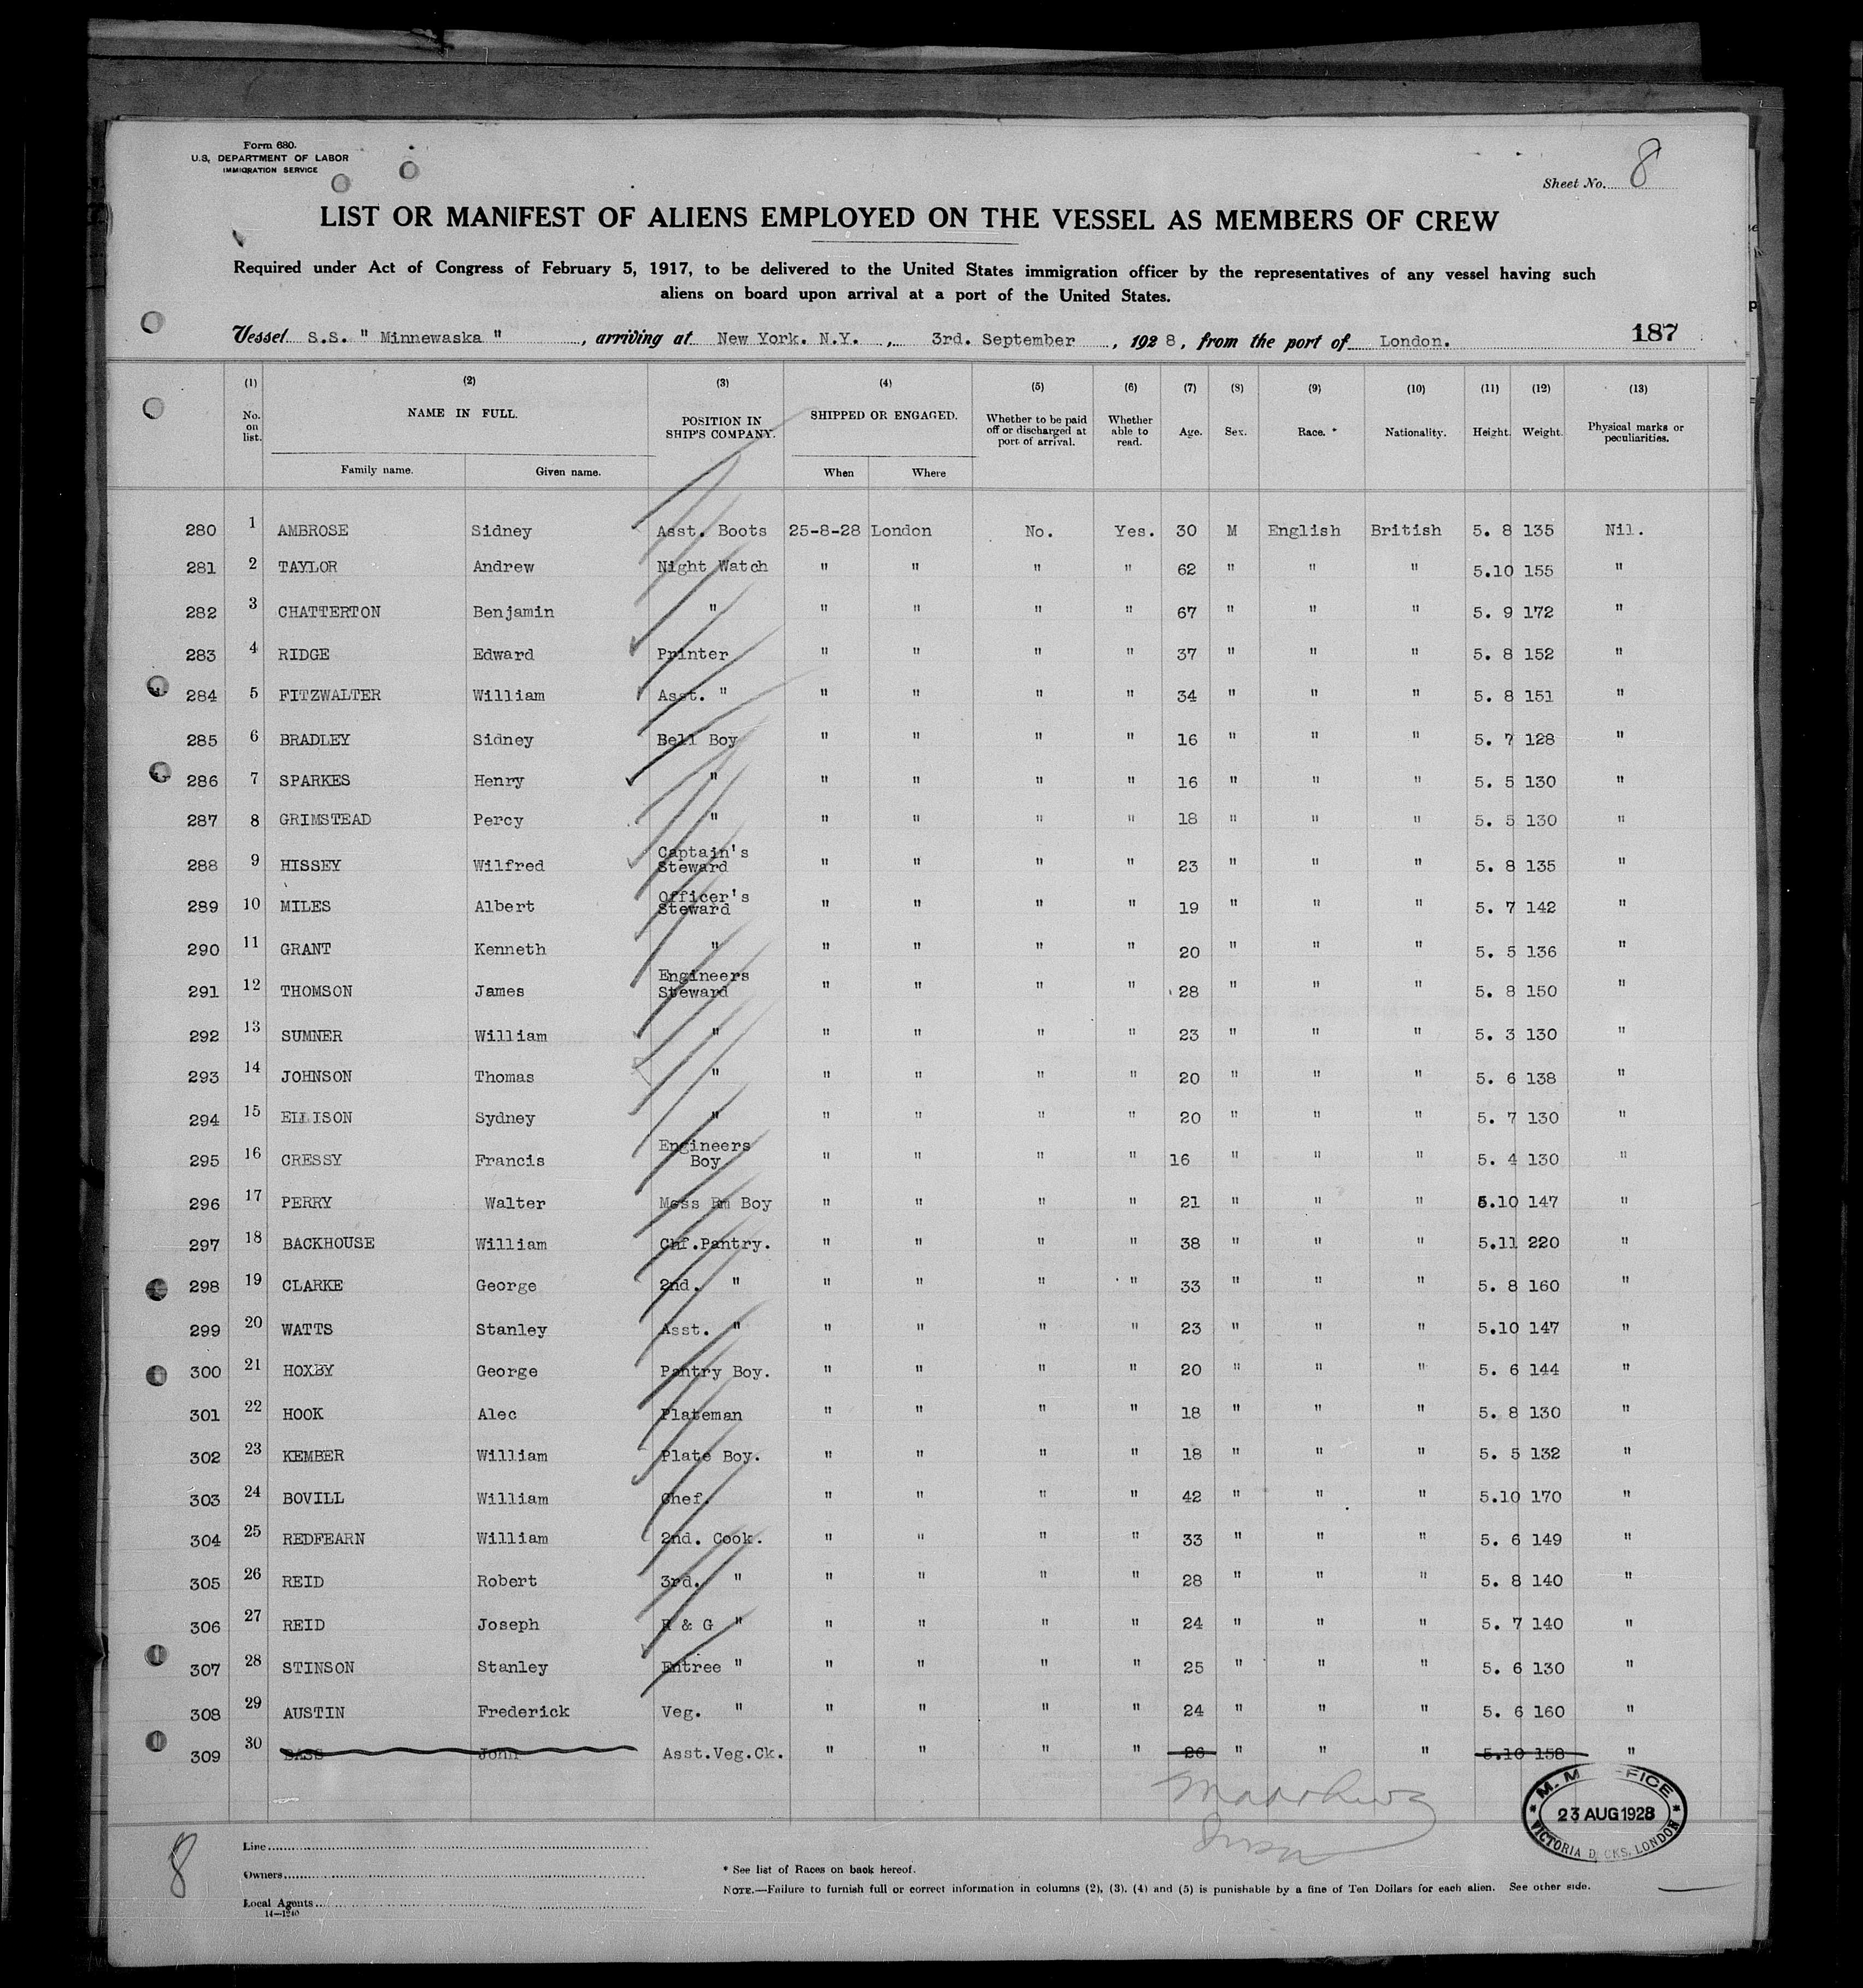 Form 680.
U.S. DEPARTMENT OF LABOR
IMMIGRATION SERVICE
Sheet No. 8
LIST OR MANIFEST OF ALIENS EMPLOYED ON THE VESSEL AS MEMBERS OF CREW
Required under Act of Congress of February 5, 1917, to be delivered to the United States immigration officer by the representatives of any vessel having such
aliens on board upon arrival at a port of the United States.
Vessel S.S. " Minnewaska ", arriving at New York. N.Y., 3rd. September, 1928, from the port of London. 187
(1) (2) (3) (4) (5) (6) (7) (8) (9) (10) (11) (12) (13)
No. on list. NAME IN FULL. POSITION IN SHIP'S COMPANY. SHIPPED OR ENGAGED. Whether to be paid off or discharged at port of arrival. Whether able to read. Age. Sex. Race. * Nationality. Height. Weight. Physical marks or peculiarities.
Family name. Given name. When Where
280 1 AMBROSE Sidney Asst. Boots 25-8-28 London No. Yes. 30 M English British 5. 8 135 Nil.
281 2 TAYLOR Andrew Night Watch " " " " 62 " " " 5.10 155 "
282 3 CHATTERTON Benjamin " " " " " 67 " " " 5. 9 172 "
283 4 RIDGE Edward Printer " " " " 37 " " " 5. 8 152 "
284 5 FITZWALTER William Asst. " " " " " 34 " " " 5. 8 151 "
285 6 BRADLEY Sidney Bell Boy " " " " 16 " " " 5. 7 128 "
286 7 SPARKES Henry " " " " " 16 " " " 5. 5 130 "
287 8 GRIMSTEAD Percy " " " " " 18 " " " 5. 5 130 "
288 9 HISSEY Wilfred Captain's Steward " " " " 23 " " " 5. 8 135 "
289 10 MILES Albert Officer's Steward " " " " 19 " " " 5. 7 142 "
290 11 GRANT Kenneth " " " " " 20 " " " 5. 5 136 "
291 12 THOMSON James Engineers Steward " " " " 28 " " " 5. 8 150 "
292 13 SUMNER William " " " " " 23 " " " 5. 3 130 "
293 14 JOHNSON Thomas " " " " " 20 " " " 5. 6 138 "
294 15 ELLISON Sydney " " " " " 20 " " " 5. 7 130 "
295 16 CRESSY Francis Engineers Boy " " " " 16 " " " 5. 4 130 "
296 17 PERRY Walter Mess Rm Boy " " " " 21 " " " 5.10 147 "
297 18 BACKHOUSE William Chf.Pantry. " " " " 38 " " " 5.11 220 "
298 19 CLARKE George 2nd. " " " " " 33 " " " 5. 8 160 "
299 20 WATTS Stanley Asst. " " " " " 23 " " " 5.10 147 "
300 21 HOXBY George Pantry Boy. " " " " 20 " " " 5. 6 144 "
301 22 HOOK Alec Plateman " " " " 18 " " " 5. 8 130 "
302 23 KEMBER William Plate Boy. " " " " 18 " " " 5. 5 132 "
303 24 BOVILL William Chef. " " " " 42 " " " 5.10 170 "
304 25 REDFEARN William 2nd. Cook. " " " " 33 " " " 5. 6 149 "
305 26 REID Robert 3rd. " " " " " 28 " " " 5. 8 140 "
306 27 REID Joseph R & G " " " " " 24 " " " 5. 7 140 "
307 28 STINSON Stanley Entree " " " " " 25 " " " 5. 6 130 "
308 29 AUSTIN Frederick Veg. " " " " " 24 " " " 5. 6 160 "
309 30 BASS John Asst.Veg.Ck. " " " " 26 " " " 5.10 158 "
M. M OFFICE
23 AUG 1928
VICTORIA DOCKS, LONDON
8
Line
Owners
Local Agents
14—1240
* See list of Races on back hereof.
NOTE.—Failure to furnish full or correct information in columns (2), (3), (4) and (5) is punishable by a fine of Ten Dollars for each alien. See other side.